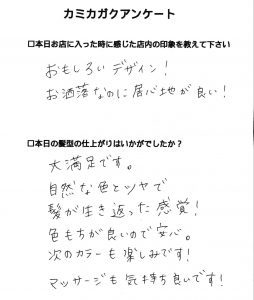 カミカガクアンケート
□本日お店に入った時に感じた店内の印象を教えて下さい
おもしろいデザイン！
お洒落なのに居心地が良い！
□本日の髪型の仕上がりはいかがでしたか？
大満足です。
自然な色とツヤで
髪が生き返った感覚！
色もちが良いので安心。
次のカラーも楽しみです！
マッサージも気持ち良いです！